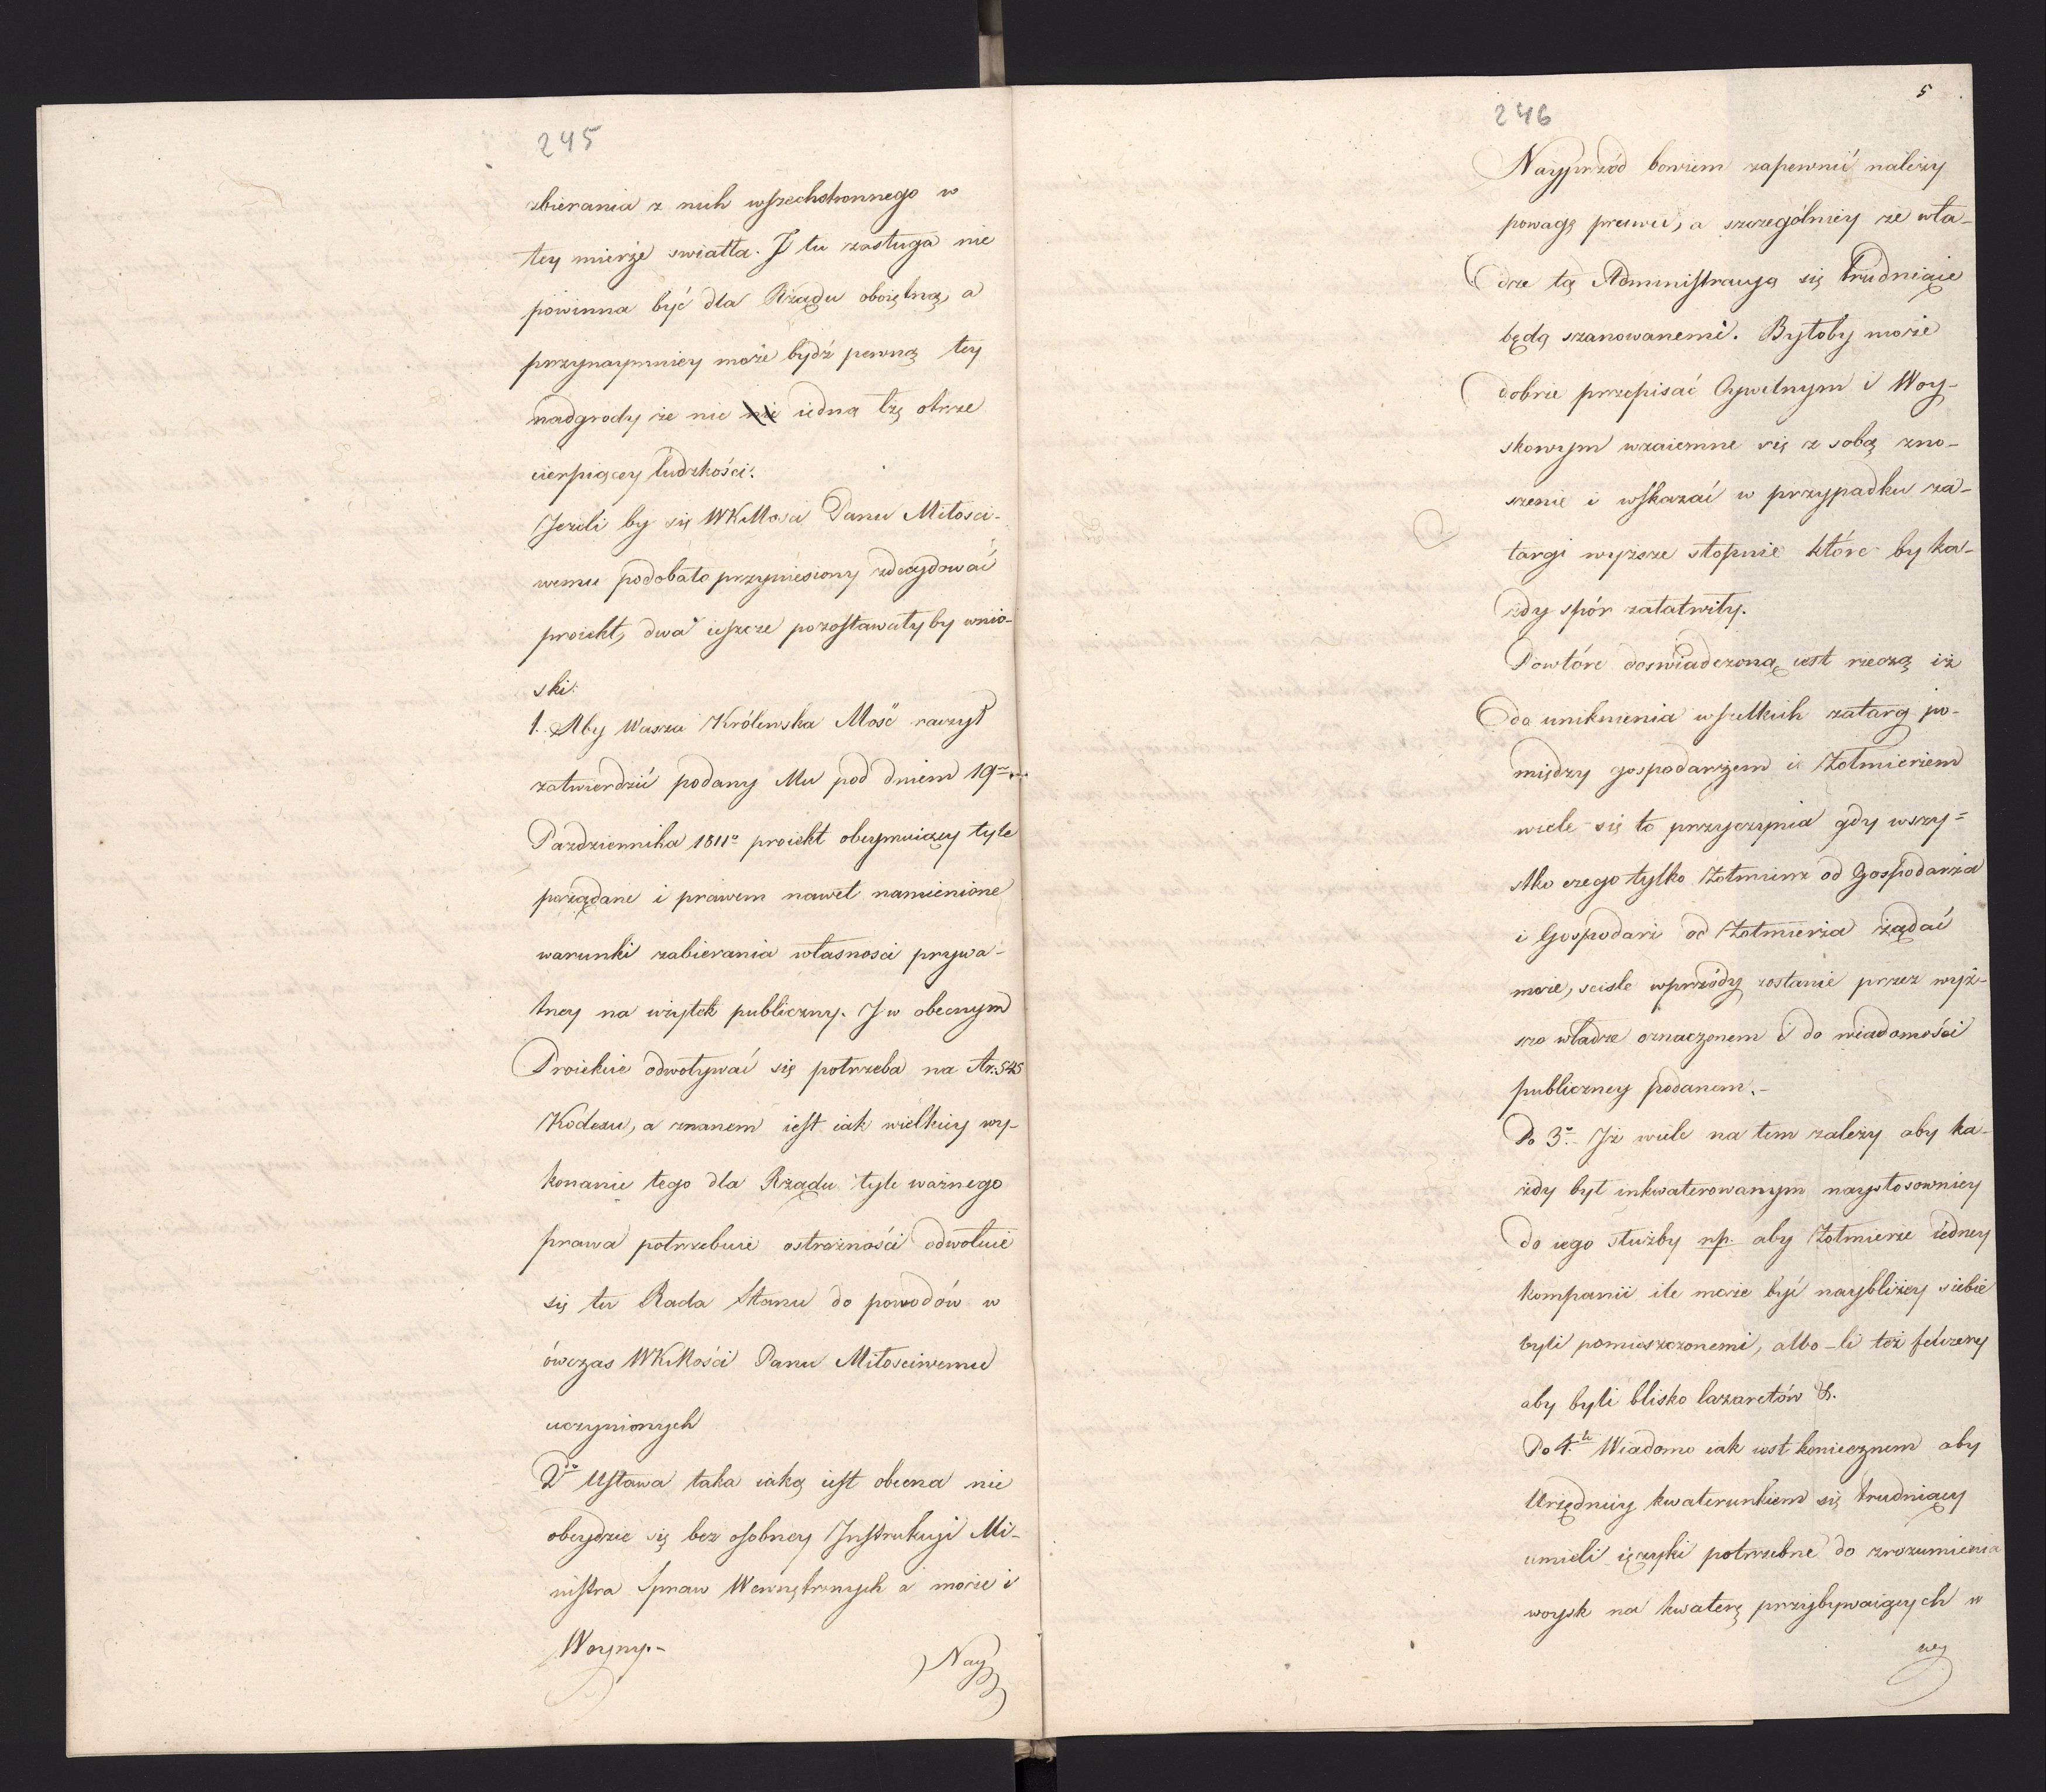 245
zbierania z nich wszechstronnego w
tey mierze swiatła. I tu zasługa nie
powinna być dla Rządu oboiętną, a
przynaymniey może bydź pewną tey
nadgrody że nie nie iedną łzę otrze
cierpiącey ludzkości.
Jeżeli by się WKMosci Panu Miłosci-
wemu podobało przyniesiony zdecydować
proiekt, dwa ieszcze pozostawałyby wnio-
ski:
1. Aby Wasza Królewska Mość raczył
zatwierdzić podany Mu pod dniem 19
Pazdziernika 1811o proiekt obeymuiący tyle
pożądane i prawem nawet namienione
warunki zabierania własnosci prywa-
tney na użytek publiczny. I w obecnym
Proiekcie odwoływać się potrzeba na Ar. 545
Kodexu, a znanem iest iak wielkiey wy-
konanie tego dla Rządu tyle ważnego
prawa potrzebuie ostrożności odwołuie
się tu Rada Stanu do powodów w
ówczas WKMości Panu Miłosciwemu
uczynionych
2do Ustawa taka iaką iest obecna nie
obeydzie się bez osobney Instrukcyi Mi-
nistra Spraw Wewnętrznych a może i
Woyny.-
Nay
5
246
Nayprzód bowiem zapewnić należy
powagę prawu, a szczególniey że wła-
dze tą Administracyą się trudniące
będą szanowanemi. Byłoby może
dobrze przepisać Cywilnym i Woy-
skowym wzaiemne się z sobą zno-
szenie i wskazać w przypadku za-
targi wyższe stopnie które by ka-
żdy spór załatwiły.
Powtóre doswiadczoną iest rzeczą iż
do uniknienia wszelkich zatarg po-
między gospodarzem i Żołnierzem
wiele się to przyczynia gdy wszy=
stko czego tylko Żołnierz od Gospodarza
i Gospodarz od Żołnierza żądać
może, scisle wprzódy zostanie przez wyż-
sze władze oznaczonem i do wiadomości
publiczney podanem.-
Do 3o Iż wiele na tem zależy aby ka-
żdy był inkwaterowanym naystosowniey
do iego służby np. aby Żołnierze iedney
kompanii ile może być naybliżey siebie
byli pomieszczonemi, albo-li też felczery
aby byli blisko lazaretów &.
Do 4te Wiadomo iak iest koniecznem aby
Urzędnicy kwaterunkiem się trudniący
umieli ięzyki potrzebne do zrozumienia
woysk na kwaterę przybywaiących w